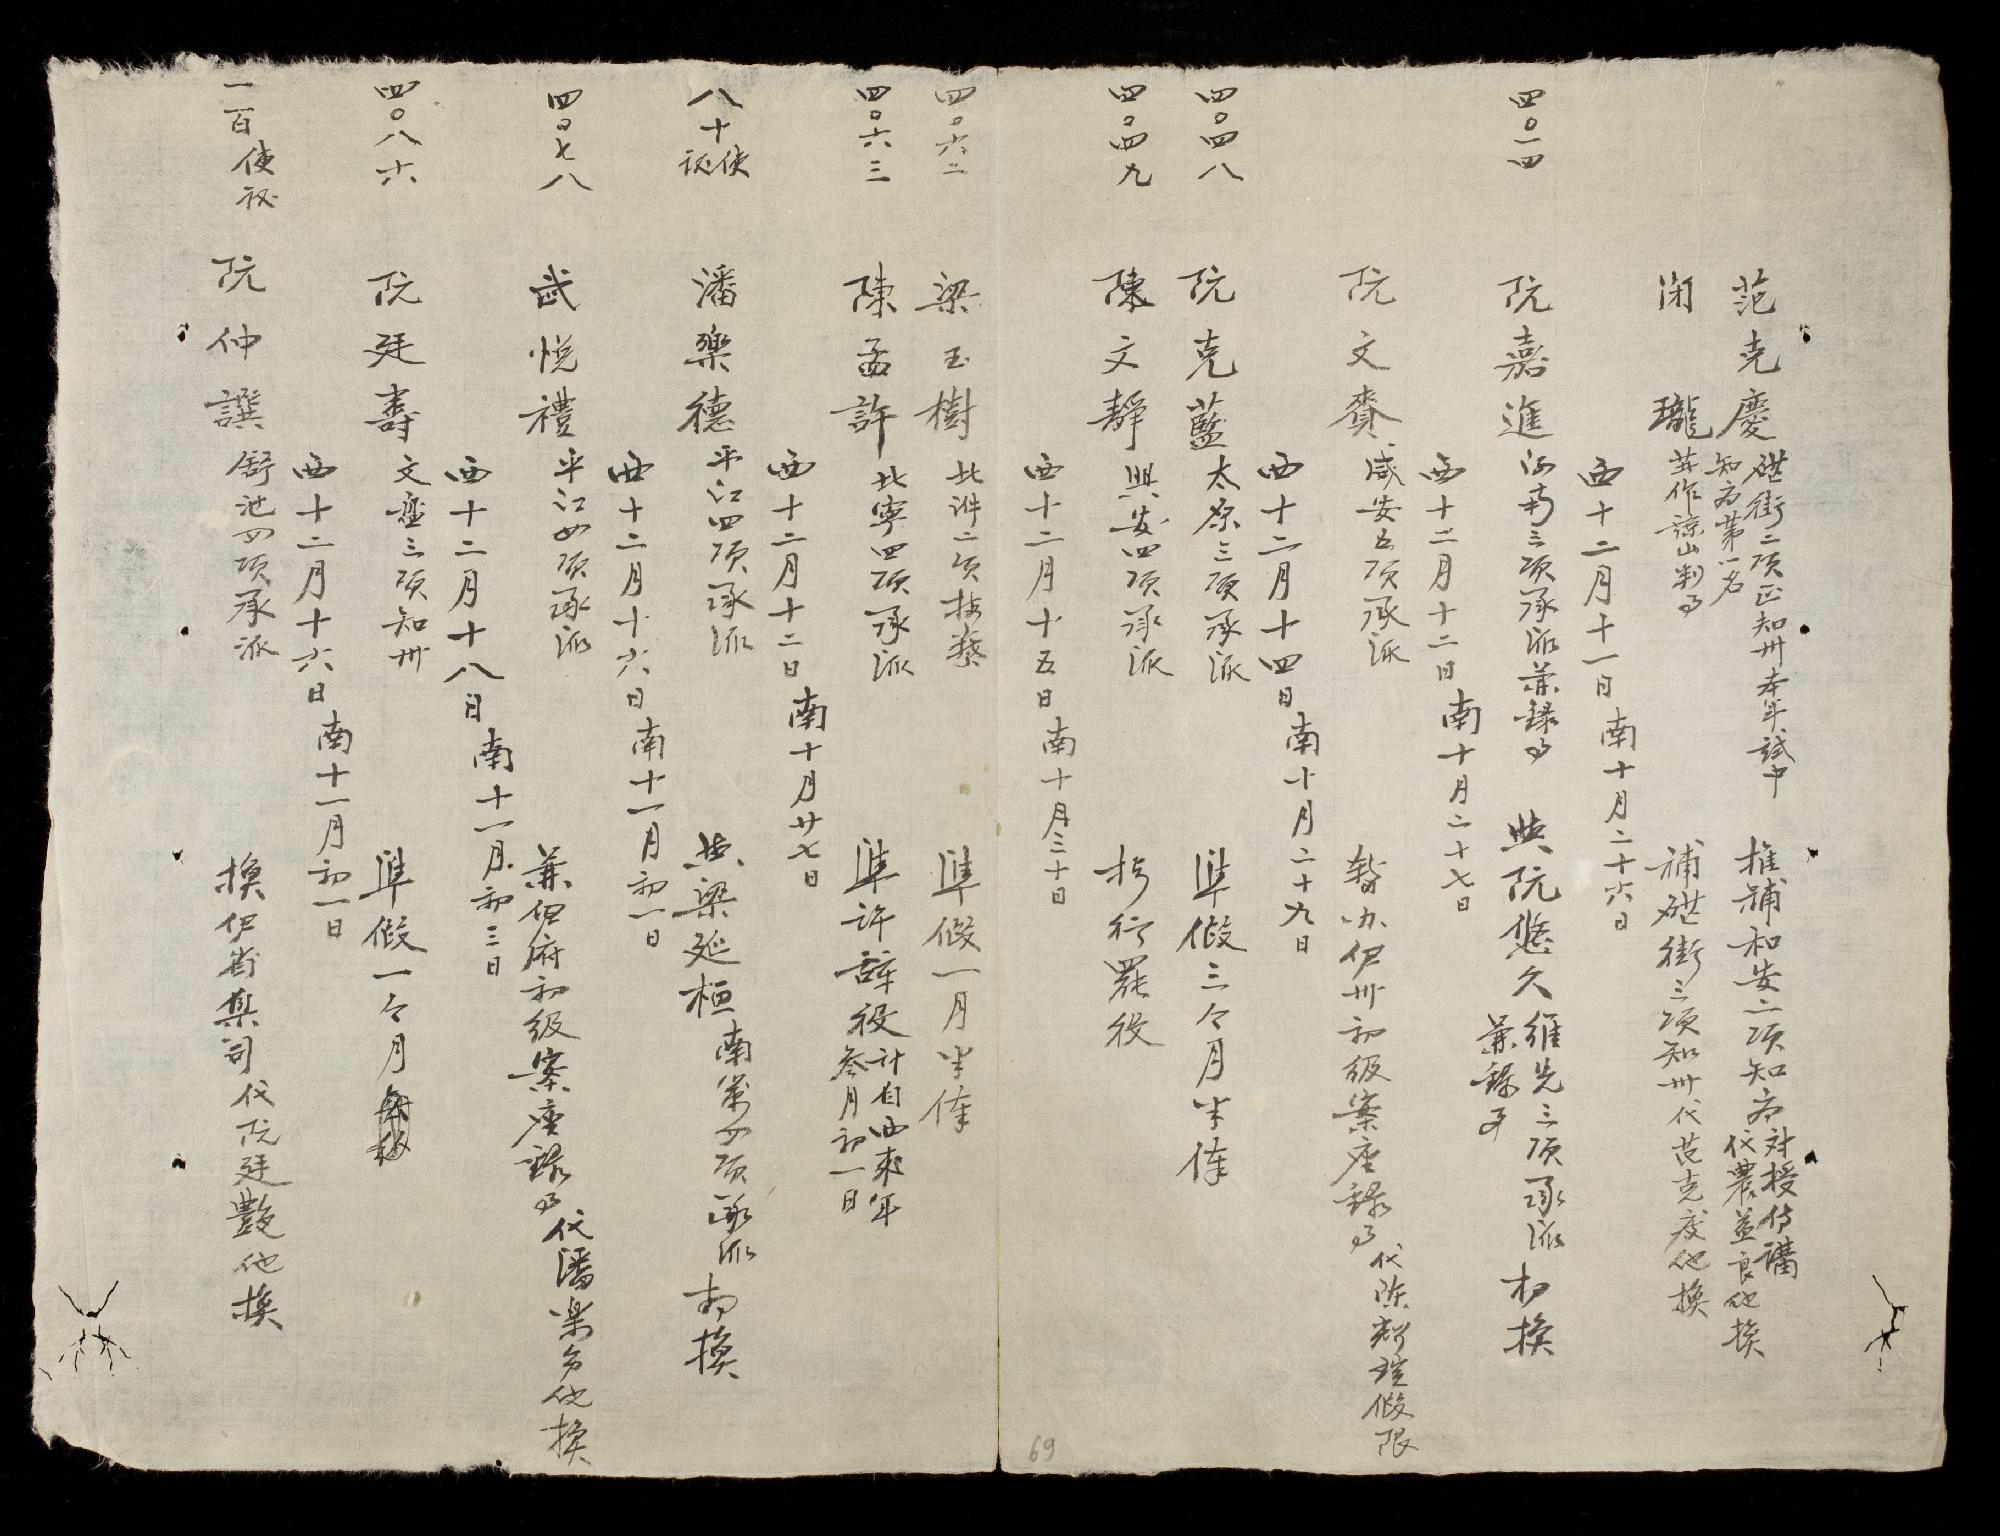 范克慶 礎街二項正知州本年試中
知府第一名 推補和安二項知府 对授侍講
代農益良他換
閉瓏 並作諒山判事 補礎街三項知州代范克慶他換
西十二月十一日南十月二十六日
四〇一四 阮嘉進 河南三項承派兼錄事 與阮悠久 維先三項承派
兼錄事 相換
西十二月十二日南十月二十七日
阮文賚 咸安五項承派 暫办伊州初級案座錄事代陈 瑄假限
西十二月十四日南十月二十九日
四〇四八 阮克藍 太原三項承派 準假三个月半俸
四〇四九 陳文靜 興安四項承派 撝行罷役
西十二月十五日南十月三十日
四〇六二 梁玉樹 北 二項按察 準假一月半俸
四〇六三 陳孟許 北寧四項承派 準許辞役 計自西来年
叁月初一日
西十二月十二日南十月廿七日
八十使秘 潘樂德 平江四項承派 與梁延桓 南策四項承派 相換
西十二月十六日南十一月初一日
四〇七八 武悅禮 平江四項承派 兼伊府初級案座錄事代潘楽多他換
西十二月十八日南十一月初三日
四〇八六 阮廷壽 文盘三項知州 準假一个月
西十二月十六日南十一月初一日
一百使秘 阮仲譔 舒池四項承派 換伊省集司代阮廷艷他換
69